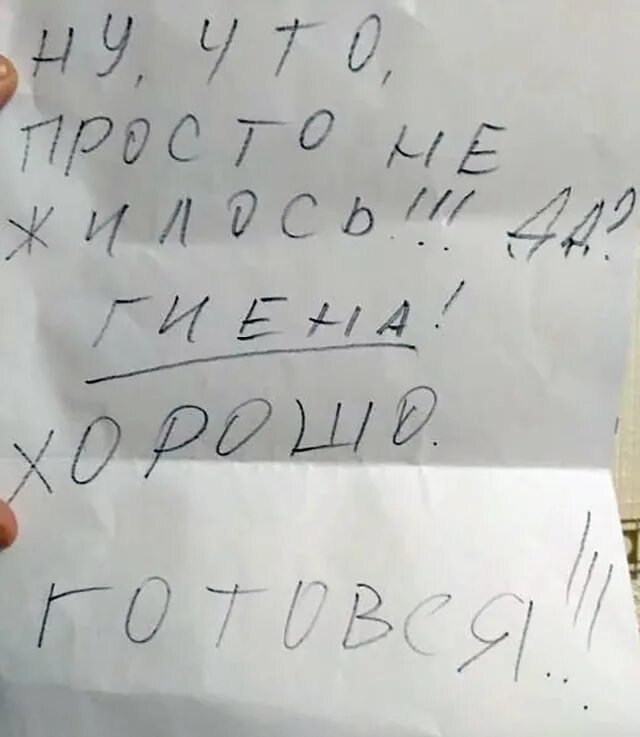 НУ, ЧТО,
ПРОСТО НЕ
ЖИЛОСЬ!!! ДА?
ГИЕНА!
ХОРОШО.
ГОТОВСЯ!!!